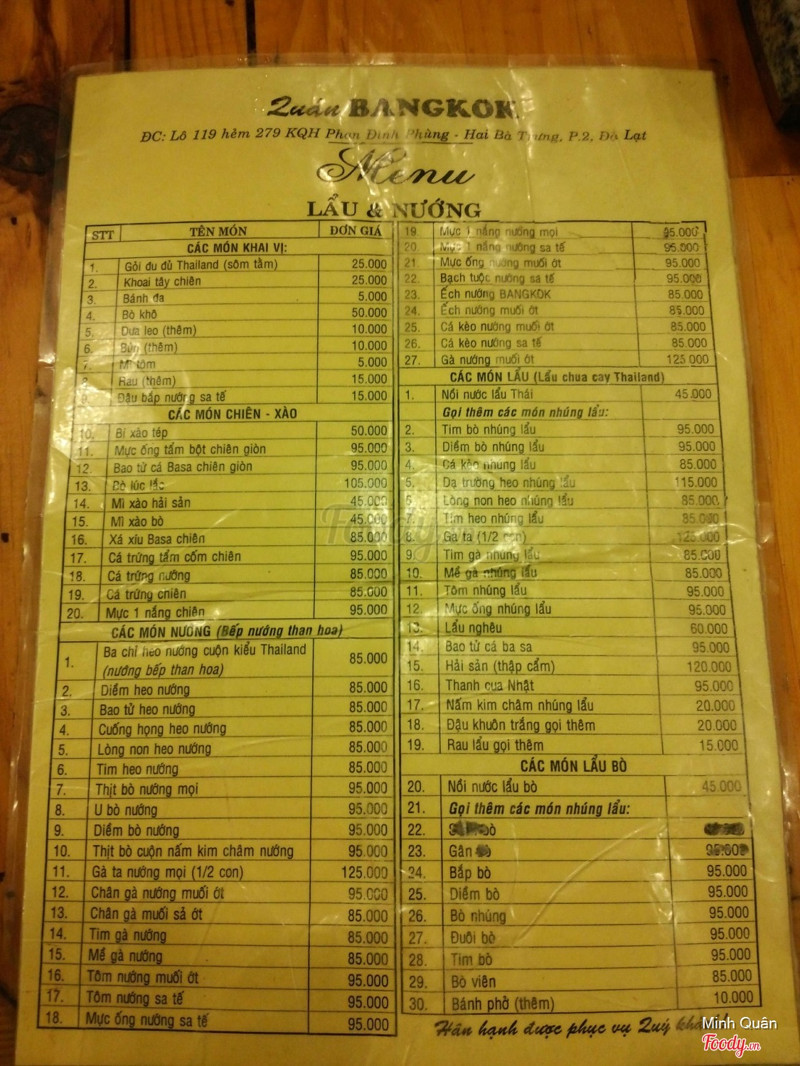 Quán BANGKOK
ĐC: Lô 119 hẻm 279 KQH Phan Đình Phùng - Hai Bà Trưng, P.2, Đà Lạt
Menu
LẨU & NƯỚNG
STT TÊN MÓN ĐƠN GIÁ
CÁC MÓN KHAI VỊ:
1. Gỏi đu đủ Thailand (sôm tằm) 25.000
2. Khoai tây chiên 25.000
3. Bánh đa 5.000
4. Bò khô 50.000
5. Dưa leo (thêm) 10.000
6. Bún (thêm) 10.000
7. Mì tôm 5.000
8. Rau (thêm) 15.000
9. Đậu bắp nướng sa tế 15.000
CÁC MÓN CHIÊN - XÀO
10. Bí xào tép 50.000
11. Mực ống tẩm bột chiên giòn 95.000
12. Bao tử cá Basa chiên giòn 95.000
13. Bò lúc lắc 105.000
14. Mì xào hải sản 45.000
15. Mì xào bò 45.000
16. Xá xíu Basa chiên 85.000
17. Cá trứng tẩm cốm chiên 95.000
18. Cá trứng nướng 85.000
19. Cá trứng chiên 85.000
20. Mực 1 nắng chiên 95.000
CÁC MÓN NƯỚNG (Bếp nướng than hoa)
1. Ba chỉ heo nướng cuộn kiểu Thailand 85.000
(nướng bếp than hoa)
2. Diềm heo nướng 85.000
3. Bao tử heo nướng 85.000
4. Cuống họng heo nướng 85.000
5. Lòng non heo nướng 85.000
6. Tim heo nướng 85.000
7. Thịt bò nướng mọi 95.000
8. U bò nướng 95.000
9. Diềm bò nướng 95.000
10. Thịt bò cuộn nấm kim châm nướng 95.000
11. Gà ta nướng mọi (1/2 con) 125.000
12. Chân gà nướng muối ớt 95.000
13. Chân gà muối sả ớt 85.000
14. Tim gà nướng 85.000
15. Mề gà nướng 85.000
16. Tôm nướng muối ớt 95.000
17. Tôm nướng sa tế 95.000
18. Mực ống nướng sa tế 95.000
19. Mực 1 nắng nướng mọi 95.000
20. Mực 1 nắng nướng sa tế 95.000
21. Mực ống nướng muối ớt 95.000
22. Bạch tuộc nướng sa tế 95.000
23. Ếch nướng BANGKOK 85.000
24. Ếch nướng muối ớt 85.000
25. Cá kèo nướng muối ớt 85.000
26. Cá kèo nướng sa tế 85.000
27. Gà nướng muối ớt 125.000
CÁC MÓN LẨU (Lẩu chua cay Thailand)
1. Nồi nước lẩu Thái 45.000
Gọi thêm các món nhúng lẩu:
2. Tim bò nhúng lẩu 95.000
3. Diềm bò nhúng lẩu 95.000
4. Cá kèo nhúng lẩu 85.000
5. Dạ trường heo nhúng lẩu 115.000
6. Lòng non heo nhúng lẩu 85.000
7. Tim heo nhúng lẩu 85.000
8. Gà ta (1/2 con) 125.000
9. Tim gà nhúng lẩu 85.000
10. Mề gà nhúng lẩu 85.000
11. Tôm nhúng lẩu 95.000
12. Mực ống nhúng lẩu 95.000
13. Lẩu nghêu 60.000
14. Bao tử cá ba sa 95.000
15. Hải sản (thập cẩm) 120.000
16. Thanh cua Nhật 95.000
17. Nấm kim châm nhúng lẩu 20.000
18. Đậu khuôn trắng gọi thêm 20.000
19. Rau lẩu gọi thêm 15.000
CÁC MÓN LẨU BÒ
20. Nồi nước lẩu bò 45.000
21. Gọi thêm các món nhúng lẩu:
22. bò
23. Gân
24. Bắp bò 95.000
25. Diềm bò 95.000
26. Bò nhúng 95.000
27. Đuôi bò 95.000
28. Tim bò 95.000
29. Bò viên 85.000
30. Bánh phở (thêm) 10.000
Hân hạnh được phục vụ Quý
Minh Quân
Foody.vn
Foody